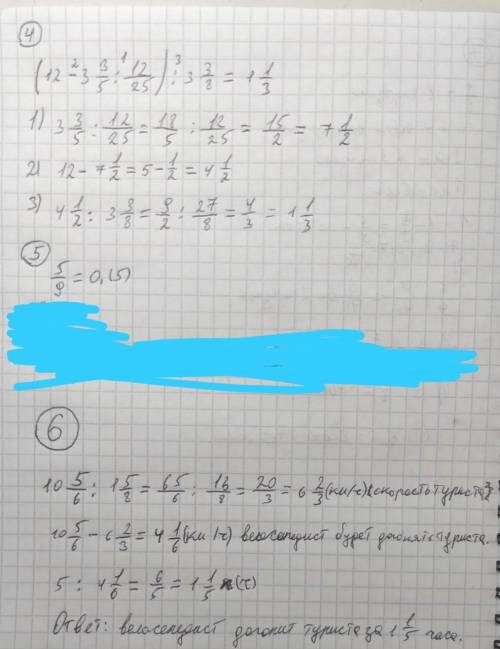 4
(12 - 3 3/5 : 12/25) : 3 3/8 = 1 1/3
1) 3 3/5 : 12/25 = 18/5 : 12/25 = 15/2 = 7 1/2
2) 12 - 7 1/2 = 5 - 1/2 = 4 1/2
3) 4 1/2 : 3 3/8 = 9/2 : 27/8 = 4/3 = 1 1/3
5
5/9 = 0,(5)
6
10 5/6 : 1 5/8 = 65/6 : 13/8 = 20/3 = 6 2/3 (км/ч) (скорость туриста)
10 5/6 - 6 2/3 = 4 1/6 (км/ч) велосепедист будет догонять туриста.
5 : 4 1/6 = 6/5 = 1 1/5 (ч)
Ответ: велосепедист догонит туриста за 1 1/5 часа.